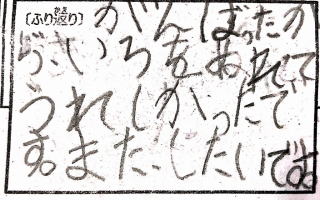 〔ふり返り〕がんばったか
ら、いろをぬれて
うれしかったで
す。また、したいです。